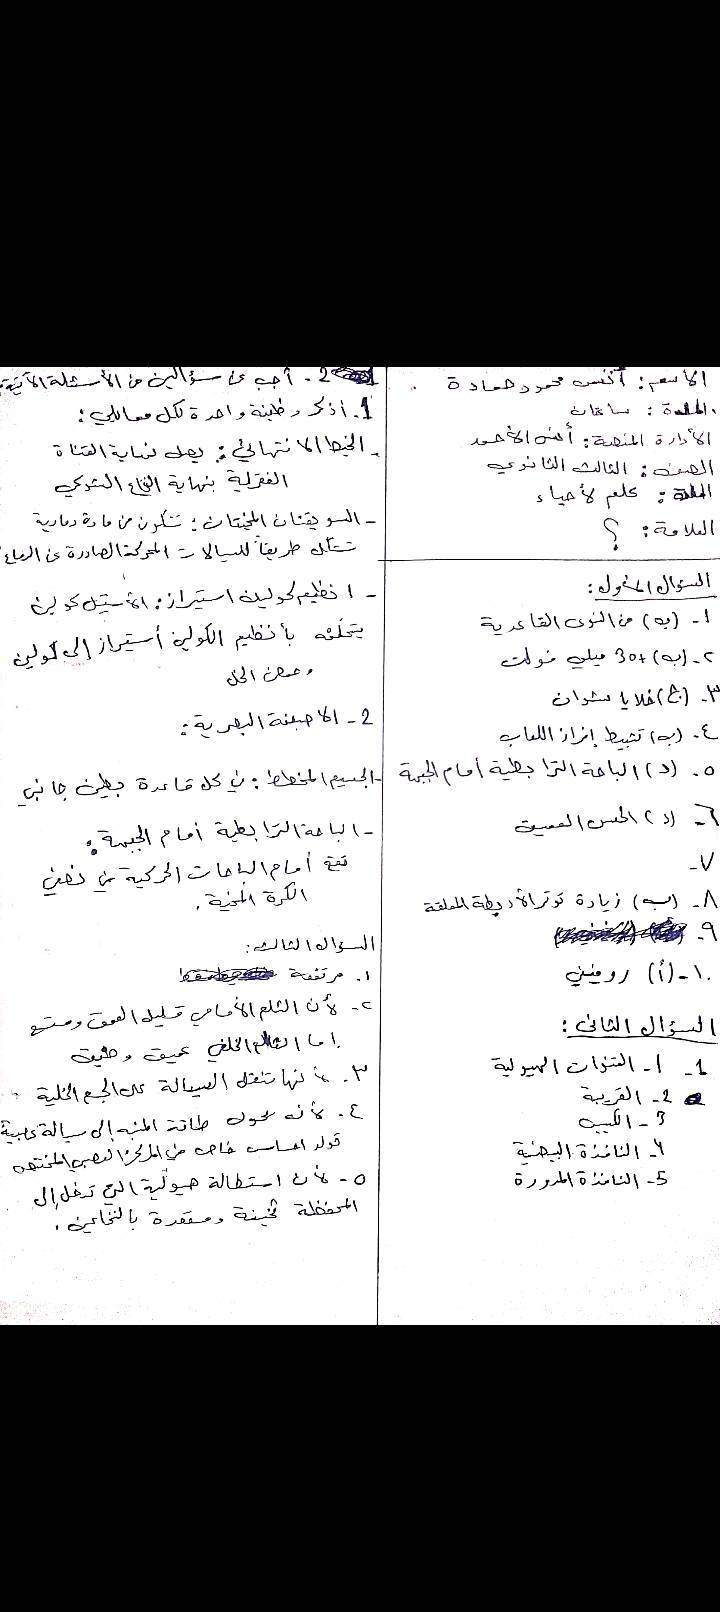 الاسم: أنس محمود حمادة
المدة: ساعتان
الأدارة المنصة: أنس الأحمد
الصف: الثالث الثانوي
المادة: علم لأحياء
العلامة: ؟
السؤال الأول:
١- (ب) من النوى القاعدية
٢- (ب) +30 ميلي فولت
٣- (ج) خلايا شوان
٤- (ب) تثبيط إفراز اللعاب
٥- (د) الباحة الترابطية أمام الجبهة
٦- (د) الحس العميق
٧-
٨- (ب) زيادة توتر الأربطة المعلقة
٩-
١٠- (أ) روفيني
السؤال الثاني:
1- 1- النتوءات الهيولية
2- القريبة
3- الكييس
4- النافذة البيضية
5- النافذة المدورة
2- أجب عن سؤالين من الأسئلة الآتية:
1- أذكر وظيفة واحدة لكل ممايلي:
- الخيط الانتهائي: يصل نهاية القناة
الفقرية بنهاية النخاع الشوكي
- السويقتان المخيتان: تتكون من مادة رمادية
تشكل طريقاً للسيالات المحركة الصادرة عن الدماغ
- انظيم كولين استيراز: الأستيل كولين
يتحلمه بأنظيم الكولين أستيراز إلى كولين
وحمض الخل
2- الاصبغة البصرية:
- الجسم المخطط: في كل قاعدة بطين جانبي
- الباحة الترابطية أمام الجبهة:
تقع أمام الباحات الحركية من نصفي
الكرة المخية.
السؤال الثالث:
١- مرتفعة
٢- لأن الثلم الأمامي قليل العمق ومتسع
اما الثلم الخلفي عميق وضيق
٣- لأنها تنقل السيالة من الجسم الخلية
٤- لأنه يحول طاقة المنبه إلى سيالة عصبية
تولد احساس خاص في المركز العصبي المختص
٥- لأن استطالة هيولية التي تدخل إلى
المحفظة ثخينة ومغمدة بالنخاعين.